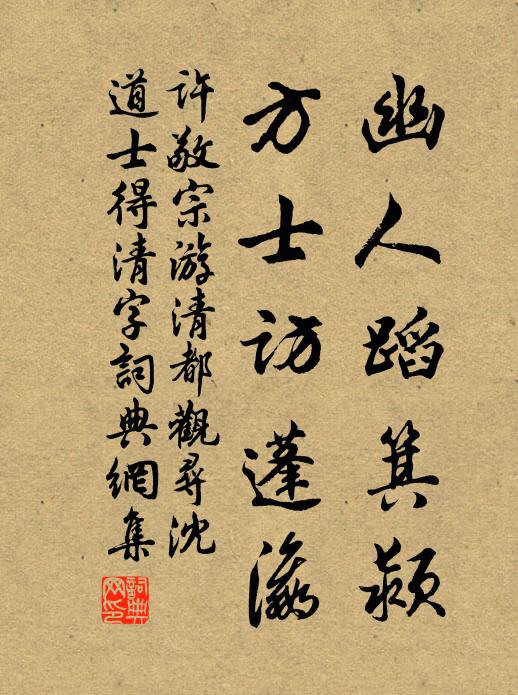 幽人蹈箕颍
方士访蓬瀛
许敬宗游清都觀尋沈
道士得清字詞典網集
詞典网印